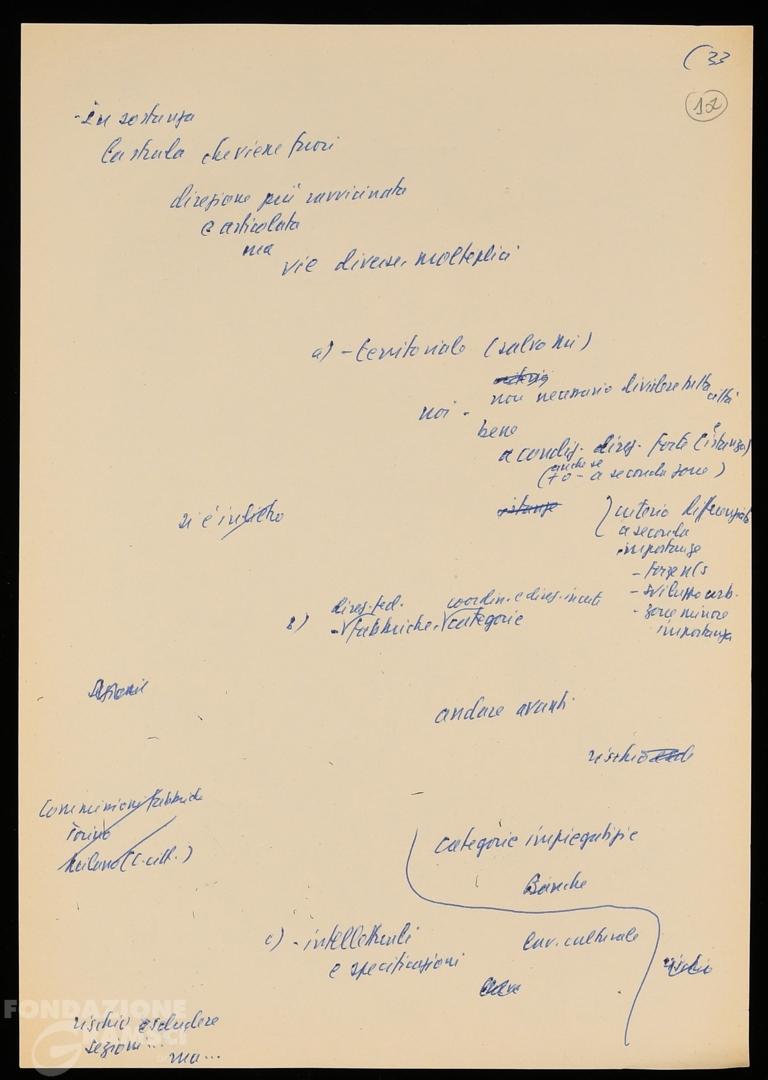 (33
12
- In sostanza
la strada che viene fuori
direzione più ravvicinata
e articolata
ma
vie diverse, molteplici
a) - territoriale (salvo NU)
non necessario dividere tutta città
noi -
bene
a condiz. direz. forte (istanza)
anche se
(70 - a seconda zone)
istanze
criterio differenziato
a seconda
importanza
- forze ns
- sviluppo urb.
- zone minore
importanza
si è
direz. fed. coordin. e direz. incert
b) - fabbriche, categorie
Sezioni
andare avanti
rischio
Commissioni fabbriche
Torino
Milano (C. citt.)
categorie impiegatizie
Banche
c) - intellettuali
e specificazioni
Lav. culturale
rischio
rischio escludere
sezioni...
ma...
FONDAZIONE
GRAMSCI